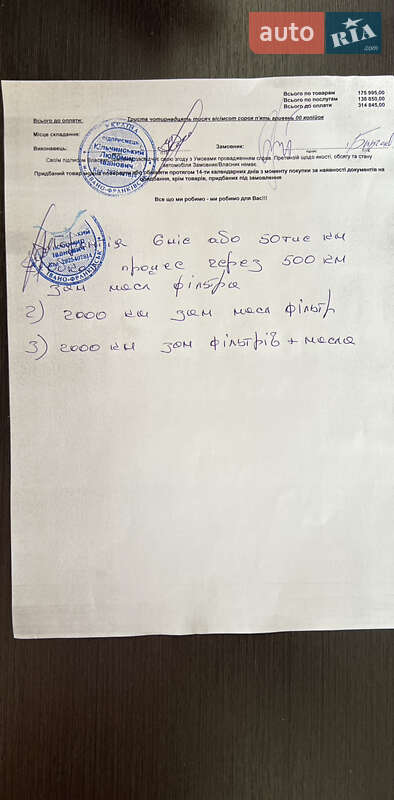 auto RIA .com
Всього по товарам 175 995,00
Всього по послугам 138 850,00
Всього до оплати 314 845,00
Всього до оплати: Триста чотирнадцять тисяч вісімсот сорок п'ять гривень 00 копійок
Місце складання:
Виконавець: Замовник:
Своїм підписом Власник свою згоду з Умовами провадженням справ. Претензій щодо якості, обсягу та стану
автомобіля Замовник/Власник немає.
Придбаний товар можна повернути або обміняти протягом 14-ти календарних днів з моменту покупки за наявності документів на
придбання, крім товарів, придбаних під замовлення
Все що ми робимо - ми робимо для Вас!!!
УКРАЇНА
ПІДПРИЄМЕЦЬ
Кільчицький
Любомир
Іванович
ІВАНО-ФРАНКІВСЬК
6 міс або 50 тис км
через 500 км
зам масл фільтра
2) 2000 км зам масл фільтр
3) 2000 км зам фільтрів + масла